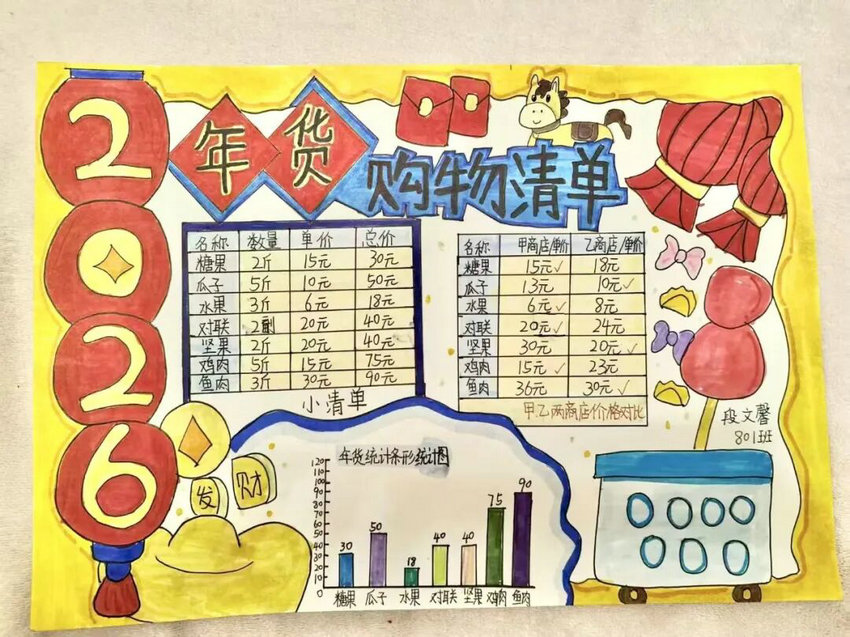 2026
年货
购物清单
名称 数量 单价 总价
糖果 2斤 15元 30元
瓜子 5斤 10元 50元
水果 3斤 6元 18元
对联 2副 20元 40元
坚果 2斤 20元 40元
鸡肉 5斤 15元 75元
鱼肉 3斤 30元 90元
小清单
名称 甲商店/单价 乙商店/单价
糖果 15元✓ 18元
瓜子 13元 10元✓
水果 6元✓ 8元
对联 20元✓ 24元
坚果 30元 20元✓
鸡肉 15元✓ 23元
鱼肉 36元 30元✓
甲.乙两商店价格对比
段文馨
801班
发财
年货统计条形统计图
120
110
100
90
80
70
60
50
40
30
20
10
0
30 50 18 40 40 75 90
糖果 瓜子 水果 对联 坚果 鸡肉 鱼肉